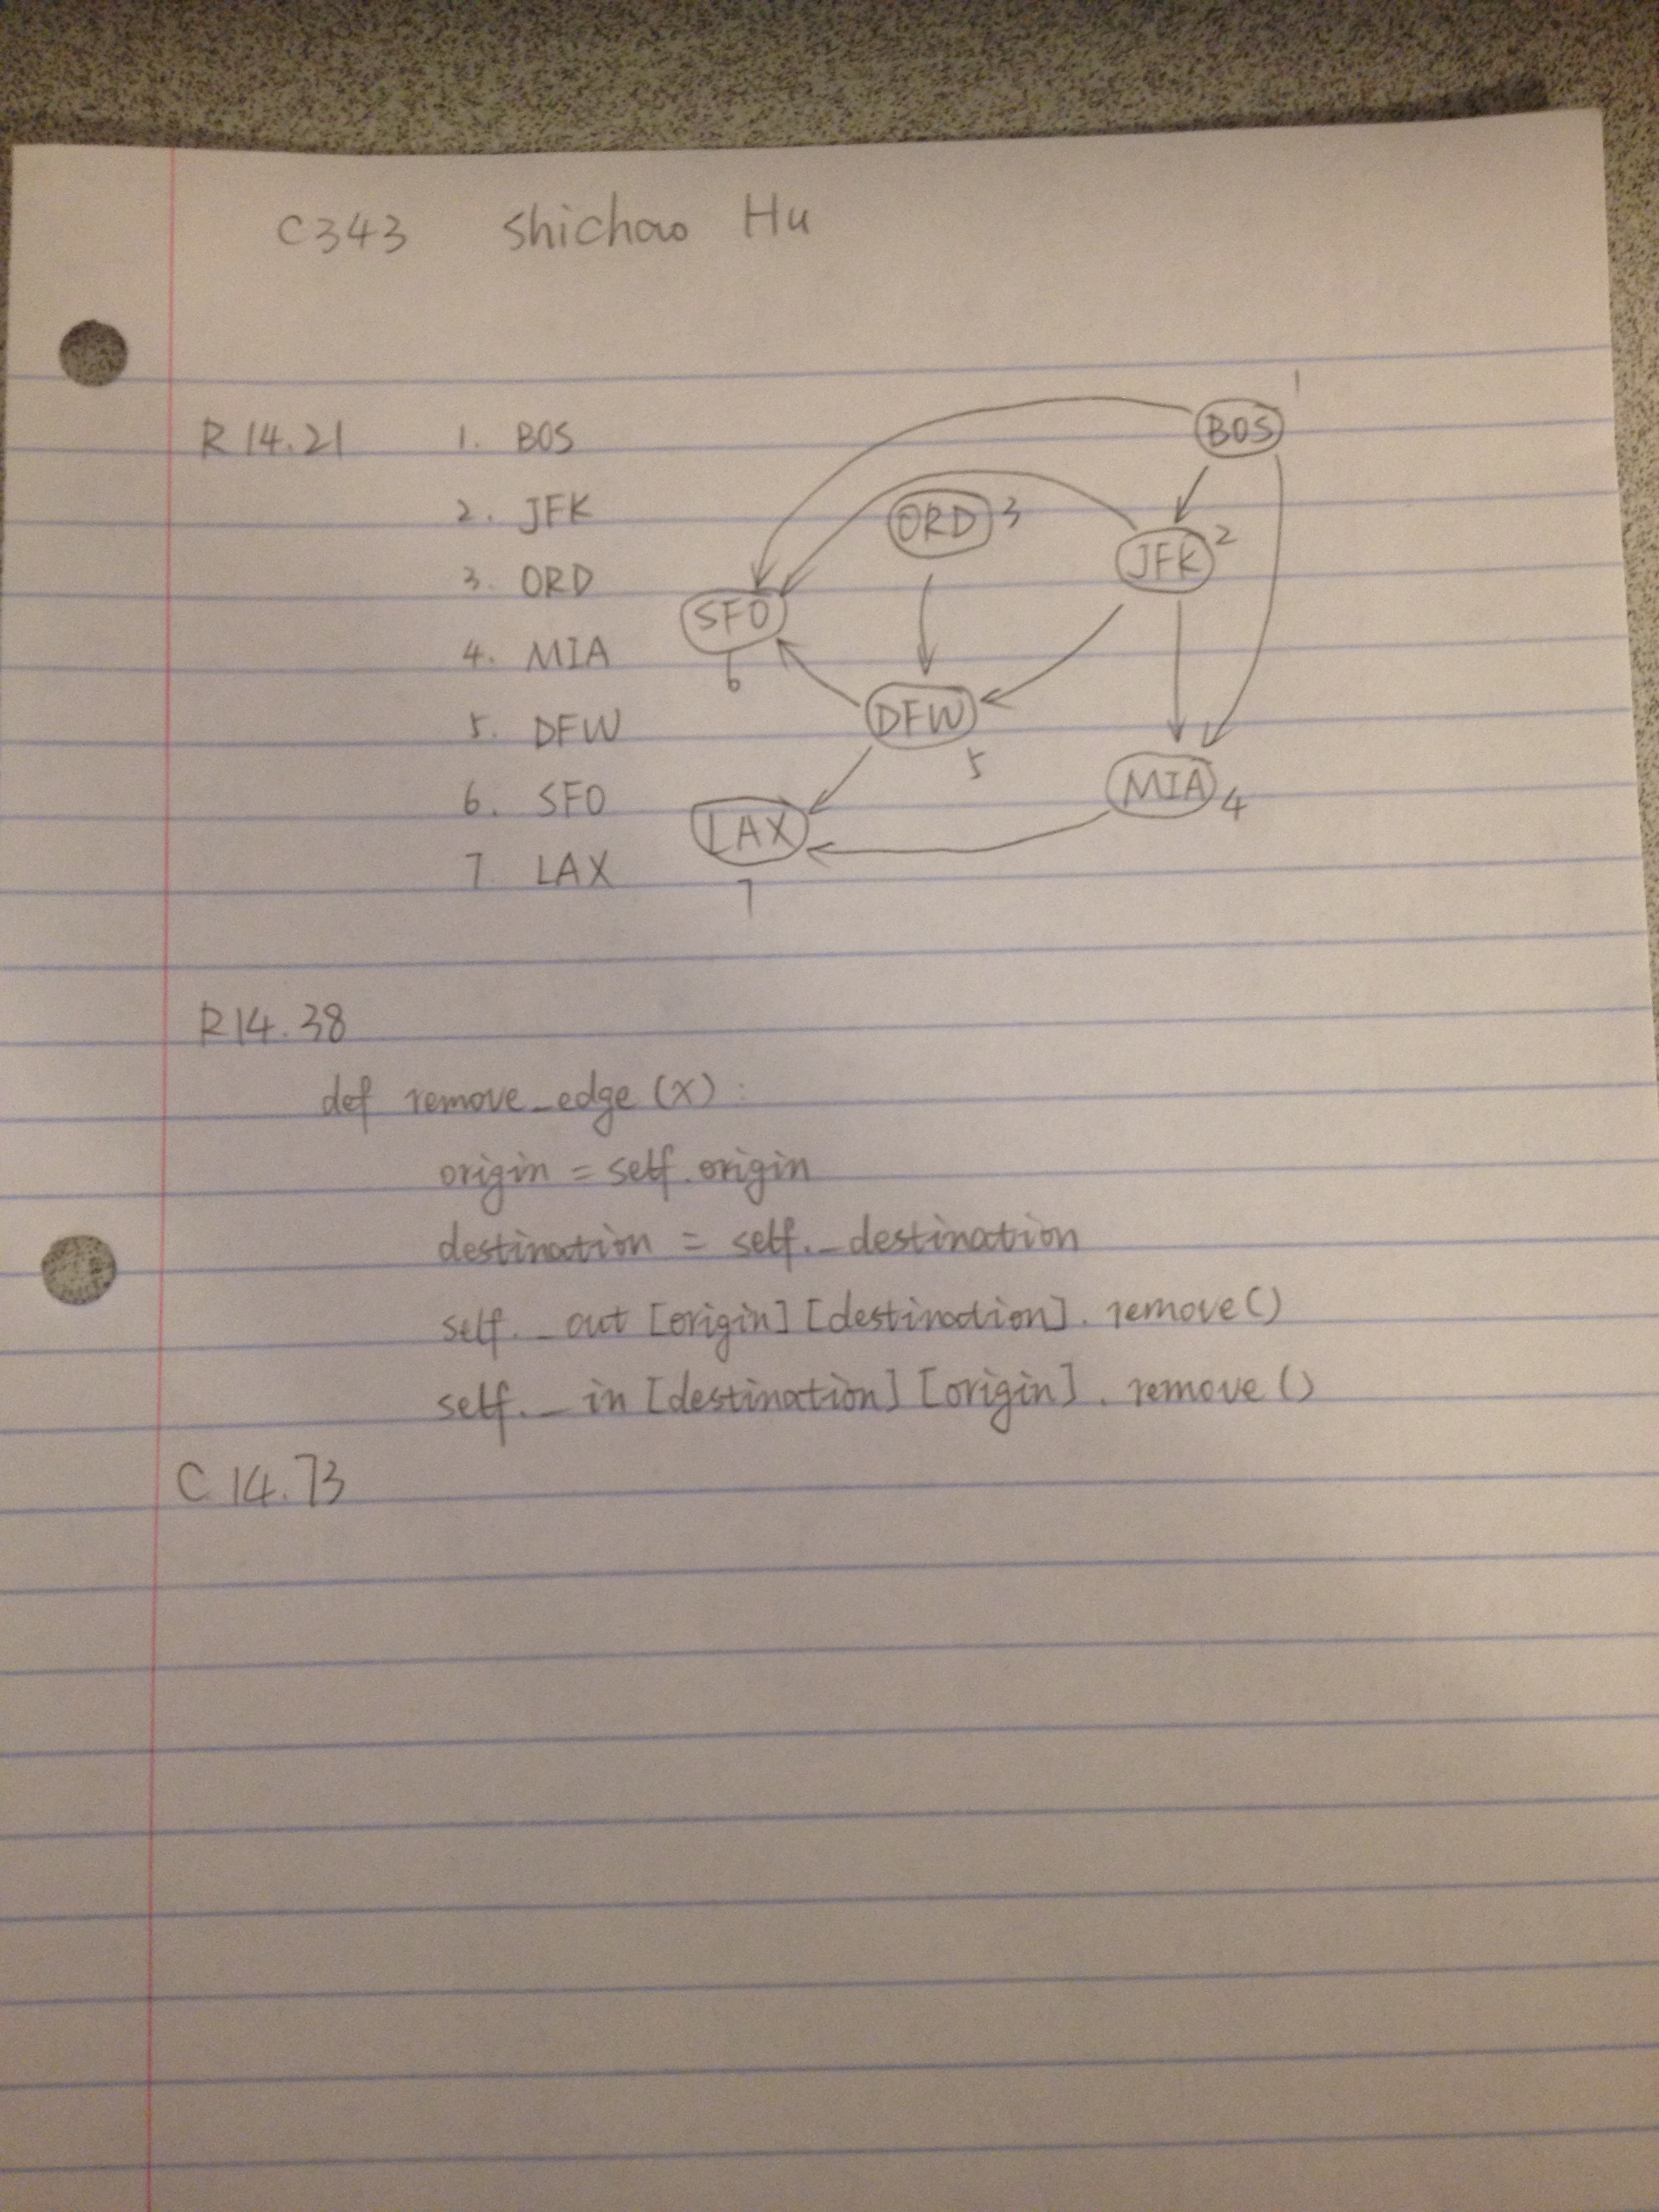 C343 Shichao Hu
R 14.21 1. BOS
2. JFK
3. ORD
4. MIA
5. DFW
6. SFO
7. LAX
BOS 1
ORD 3
JFK 2
SFO
6
DFW
5
MIA 4
LAX
7
R14.38
def remove_edge (x) :
origin = self.origin
destination = self._destination
self._out [origin] [destination]. remove()
self._in [destination] [origin]. remove ()
C 14.73